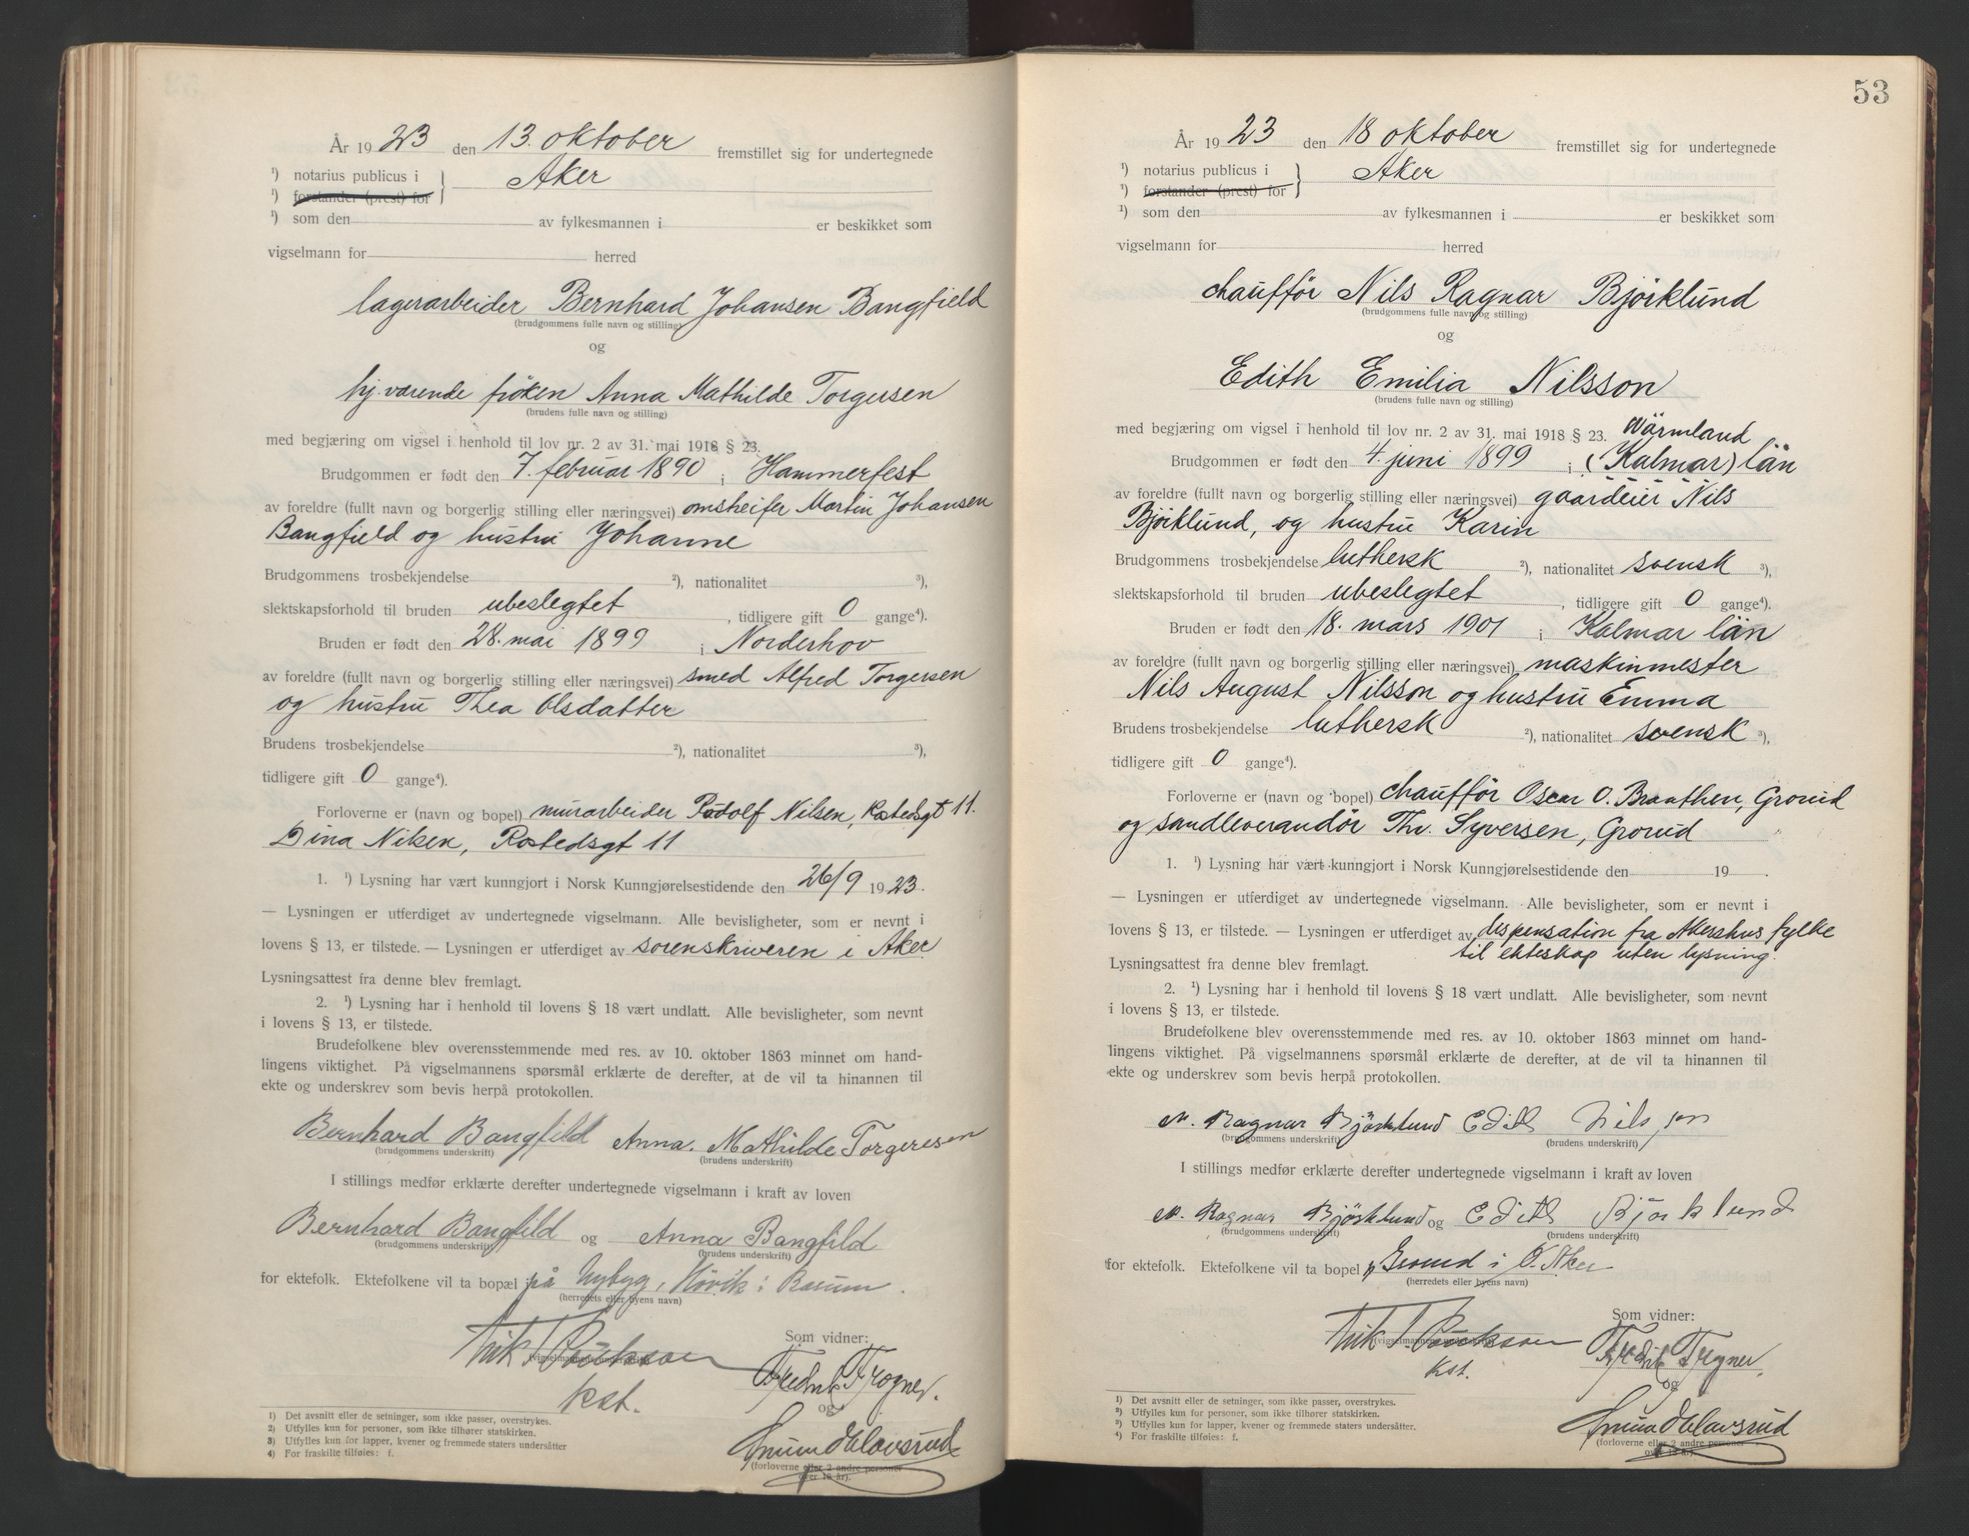 År 1923 den 13. oktober fremstillet sig for undertegnede
¹) notarius publicus i Aker
¹) forstander (prest) for
¹) som den av fylkesmannen i er beskikket som
vigselmann for herred
lagerarbeider Bernhard Johansen Bangfield
(brudgommens fulle navn og stilling)
og
hj. værende frøken Anna Mathilde Torgersen
(brudens fulle navn og stilling)
med begjæring om vigsel i henhold til lov nr. 2 av 31. mai 1918 § 23.
Brudgommen er født den 7. februar 1890 i Hammerfest
av foreldre (fullt navn og borgerlig stilling eller næringsvei) Martin Johansen
Bangfield og hustru Johanne
Brudgommens trosbekjendelse ²), nationalitet ³),
slektskapsforhold til bruden ubeslegtet, tidligere gift 0 gange⁴).
Bruden er født den 28. mai 1899 i Norderhov
av foreldre (fullt navn og borgerlig stilling eller næringsvei) smed Alfred Torgersen
og hustru Thea Olsdatter
Brudens trosbekjendelse ²), nationalitet ³),
tidligere gift 0 gange⁴).
Forloverne er (navn og bopel) murarbeider Rudolf Nilsen, Rostedsgt 11.
Dina Nilsen, Rostedsgt 11
1. ¹) Lysning har vært kunngjort i Norsk Kunngjørelsestidende den 26/9 1923.
— Lysningen er utferdiget av undertegnede vigselmann. Alle bevisligheter, som er nevnt i
lovens § 13, er tilstede. — Lysningen er utferdiget av sorenskriveren i Aker
Lysningsattest fra denne blev fremlagt.
2. ¹) Lysning har i henhold til lovens § 18 vært undlatt. Alle bevisligheter, som nevnt
i lovens § 13, er tilstede.
Brudefolkene blev overensstemmende med res. av 10. oktober 1863 minnet om hand-
lingens viktighet. På vigselmannens spørsmål erklærte de derefter, at de vil ta hinannen til
ekte og underskrev som bevis herpå protokollen.
Bernhard Bangfild Anna. Mathilde Torgeresen
(brudgommens underskrift) (brudens underskrift)
I stillings medfør erklærte derefter undertegnede vigselmann i kraft av loven
Bernhard Bangfild og Anna Bangfild
(brudgommens underskrift) (brudens underskrift)
for ektefolk. Ektefolkene vil ta bopæl i på Nybyg, Høvik i Bærum.
(herredets eller byens navn)
Som vidner:
(vigselmannens underskrift)
kst.
Fredrik Trogner.
og
Amund Olavsrud
(forloverne eller 2 andre personer
over 18 år).
1) Det avsnitt eller de setninger, som ikke passer, overstrykes.
2) Utfylles kun for personer, som ikke tilhører statskirken.
3) Utfylles kun for lapper, kvener og fremmede staters undersåtter
4) For fraskilte tilføies: f.
53
År 1923 den 18 oktober fremstillet sig for undertegnede
¹) notarius publicus i Aker
¹) forstander (prest) for
¹) som den av fylkesmannen i er beskikket som
vigselmann for herred
chaufför Nils Ragnar Bjørklund
(brudgommens fulle navn og stilling)
og
Edith Emilia Nilsson
(brudens fulle navn og stilling)
med begjæring om vigsel i henhold til lov nr. 2 av 31. mai 1918 § 23. Wärmland
Brudgommen er født den 4. juni 1899 i (Kalmar) län
av foreldre (fullt navn og borgerlig stilling eller næringsvei) gaardeier Nils
Bjørklund, og hustru Karin
Brudgommens trosbekjendelse luthersk ²), nationalitet svensk ³),
slektskapsforhold til bruden ubeslegtet, tidligere gift 0 gange⁴).
Bruden er født den 18. mars 1901 i Kalmar län
av foreldre (fullt navn og borgerlig stilling eller næringsvei) maskinmester
Nils August Nilsson og hustru Emma
Brudens trosbekjendelse luthersk ²), nationalitet svensk ³),
tidligere gift 0 gange⁴).
Forloverne er (navn og bopel) chauffør Oscar O. Braathen, Grorud
og sandleverandør Thv. Syversen, Grorud
1. ¹) Lysning har vært kunngjort i Norsk Kunngjørelsestidende den 19 .
— Lysningen er utferdiget av undertegnede vigselmann. Alle bevisligheter, som er nevnt i
lovens § 13, er tilstede. — Lysningen er utferdiget av dispensation fra Akershus fylke
til ekteskap uten lysning.
Lysningsattest fra denne blev fremlagt.
2. ¹) Lysning har i henhold til lovens § 18 vært undlatt. Alle bevisligheter, som nevnt
i lovens § 13, er tilstede.
Brudefolkene blev overensstemmende med res. av 10. oktober 1863 minnet om hand-
lingens viktighet. På vigselmannens spørsmål erklærte de derefter, at de vil ta hinannen til
ekte og underskrev som bevis herpå protokollen.
N. Ragnar Björklund Edith Nilsson
(brudgommens underskrift) (brudens underskrift)
I stillings medfør erklærte derefter undertegnede vigselmann i kraft av loven
N. Ragnar Björklund og Edith Björklund
(brudgommens underskrift) (brudens underskrift)
for ektefolk. Ektefolkene vil ta bopel på Grorud i Ø. Aker
(herredets eller byens navn)
Som vidner:
(vigselmannens underskrift)
kst.
Fredrik Trogner,
og
Amund Olavsrud
(forloverne eller 2 andre personer
over 18 år).
¹) Det avsnitt eller de setninger, som ikke passer, overstrykes.
²) Utfylles kun for personer, som ikke tilhører statskirken.
³) Utfylles kun for lapper, kvener og fremmede staters undersåtter.
⁴) For fraskilte tilføies: f.